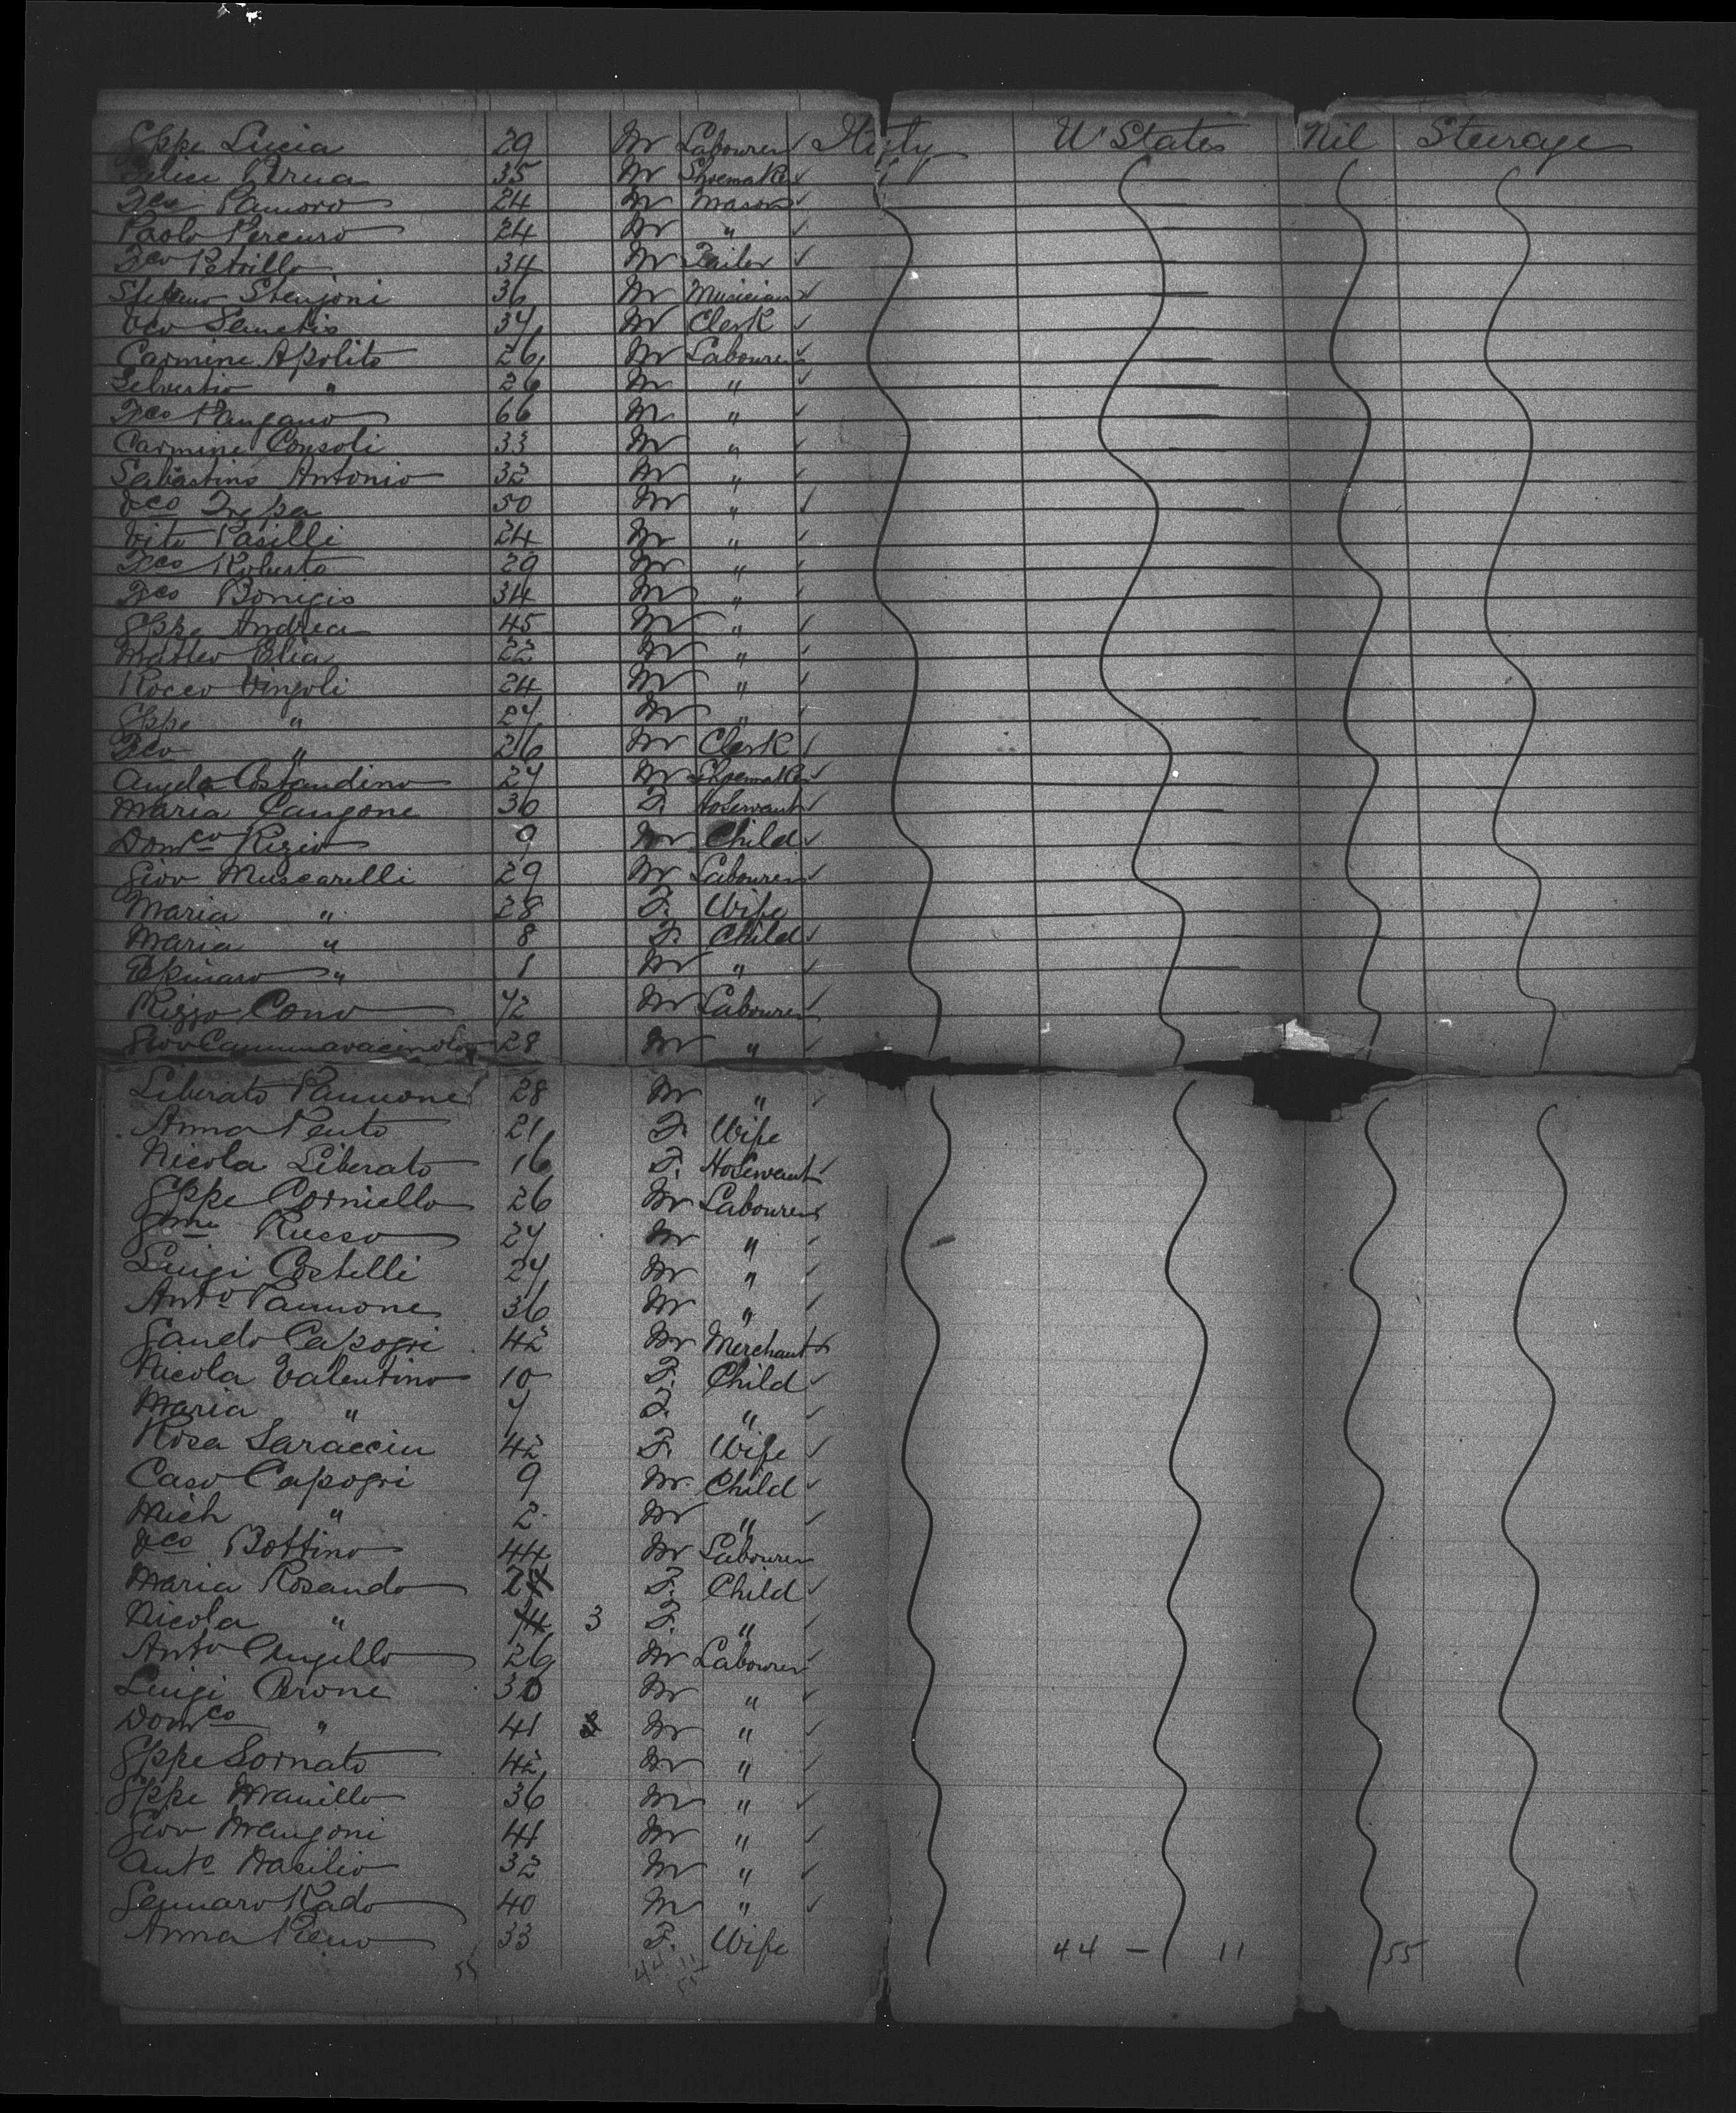 Gppe Lucia 29 M Labourer Italy U States Nil Steerage
Felice Perna 35 M Shoemaker
Fco 24 M Mason
Paolo Percuro 24 M "
Fco Petrillo 34 M Tailor
Stefano Stenjoni 36 M Musician
Vco 34 M Clerk
Carmine Apolito 26 M Labourer
Selvestro " 26 M "
Fco Mangano 66 M "
Carmine Consoli 33 M "
Sabastino Antonio 32 M "
Vco Trepa 50 M "
Vito Pasilli 24 M "
Fco Roberto 29 M "
Fco Bonigio 34 M "
Gppe Andrea 45 M "
Matteo Elia 22 M "
Rocco Vingoli 24 M "
Gppe " 27 M "
Fco " 26 M Clerk
Angelo Costandino 27 M Shoemaker
Maria Cangone 30 F. HoServant
Domco Rizio 9 M Child
Giov Muscarelli 29 M Labourer
Maria " 28 F. Wife
Maria " 8 F. Child
" 1 M "
Rizzo Cono 42 M Labourer
Giov 28 M "
Liberato Pannone 28 M "
Anna Pento 21 F. Wife
Nicola Liberato 16 F. HoServant
Gppe Corniello 26 M Labourer
Gme Russo 27 M "
Luigi Costelli 27 M "
Anto Pannone 36 M "
Gaudo Capogri 42 M Merchant
Nicola Valentino 10 F. Child
Maria " 7 F. "
Rosa Saraccin 42 F. Wife
Caso Capogri 9 M. Child
Mich " 2 M "
Vco Bottino 44 M Labourer
Maria Rosando F. Child
Nicola " 3 F. "
Anto Angello 26 M Labourer
Luigi Perone 30 M "
Domco " 41 M "
Gppe Sornato 42 M "
Gppe Maniello 36 M "
Giov Mangoni 41 M "
Anto Masilio 32 M "
Gennaro Rado 40 M "
Anna Pieno 33 F. Wife
44 — 11 55
55 44 11 55